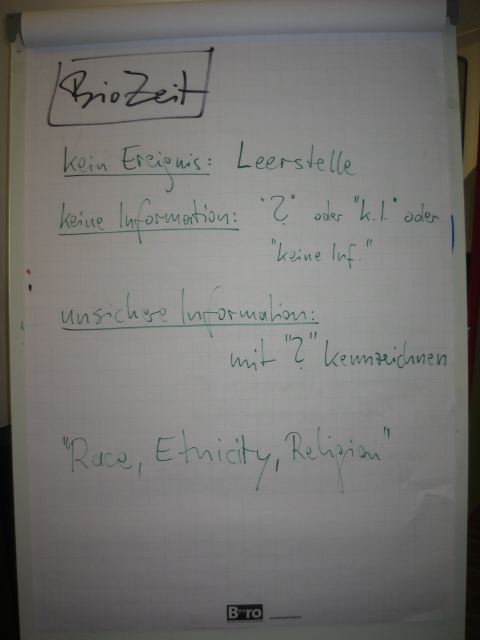 BioZeit
kein Ereignis: Leerstelle
keine Information: "?" oder "k.I." oder
"keine Inf."
unsichere Information:
mit "?" kennzeichnen
"Race, Etnicity, Religion"